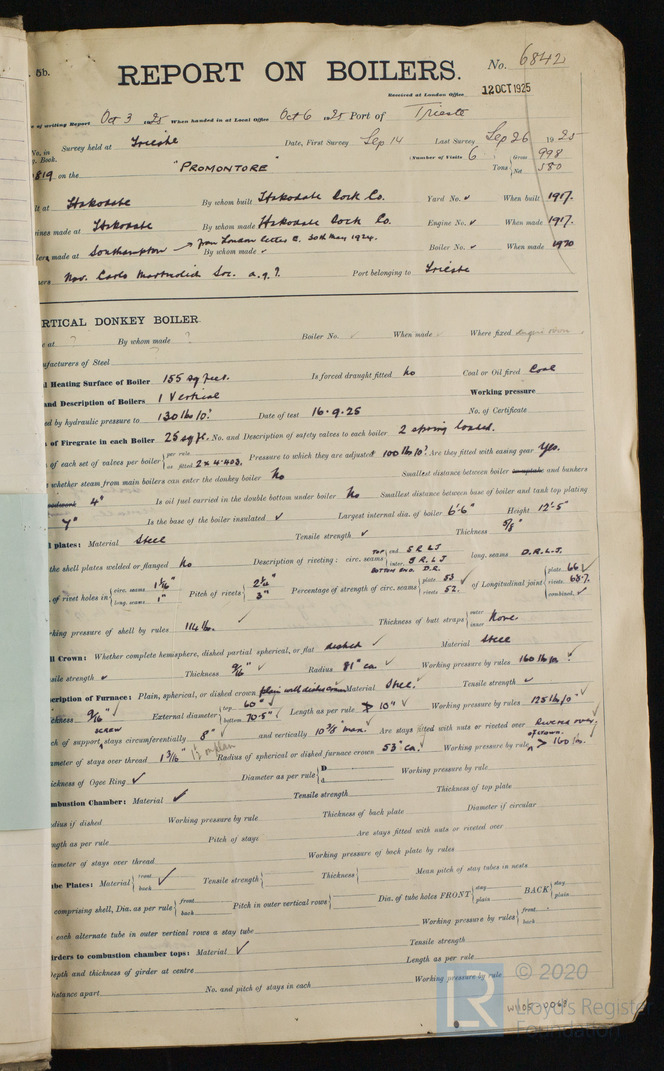 5b.
REPORT ON BOILERS.
No. 6842
Received at London Office 12 OCT 1925
of writing Report Oct 3 1925 When handed in at Local Office Oct 6 1925 Port of Trieste
No. in Survey held at Trieste Date, First Survey Sep 14 Last Survey Sep 26 1925
Book.
(Number of Visits 6) Gross 998
819 on the "PROMONTORE" Tons Net 580
Built at Hakodate By whom built Hakodate Dock Co. Yard No. ✓ When built 1917.
Engines made at Hakodate By whom made Hakodate Dock Co. Engine No. ✓ When made 1917.
made at Southampton → from London letter E. 30th May 1924. By whom made ✓ Boiler No. ✓ When made 1920
Nav. Carlo Martinolich Soc. Port belonging to Trieste
VERTICAL DONKEY BOILER.
at ? By whom made ? Boiler No. ✓ When made ✓ Where fixed
Manufacturers of Steel
Heating Surface of Boiler 155 sq feet. Is forced draught fitted No Coal or Oil fired Coal
and Description of Boilers 1 Vertical Working pressure
by hydraulic pressure to 130 lbs □" Date of test 16.9.25 No. of Certificate
of Firegrate in each Boiler 25 sq ft. No. and Description of safety valves to each boiler 2 spring loaded.
of each set of valves per boiler per rule as fitted 2 x 4.403. Pressure to which they are adjusted 100 lb □" Are they fitted with easing gear Yes.
whether steam from main boilers can enter the donkey boiler No Smallest distance between boiler and bunkers
4" Is oil fuel carried in the double bottom under boiler No Smallest distance between base of boiler and tank top plating
7" Is the base of the boiler insulated ✓ Largest internal dia. of boiler 6'-6" Height 12'-5"
plates: Material Steel Tensile strength ✓ Thickness 5/8"
the shell plates welded or flanged No Description of riveting: circ. seams TOP end S R L J inter. S R L J BOTTOM END. D.R. long. seams D.R.L.J.
of rivet holes in circ. seams 1 1/16" long. seams 1" Pitch of rivets 2 1/4" 3" Percentage of strength of circ. seams plate 53 rivets 52. of Longitudinal joint plate 66 ✓ rivets 63.7. combined ✓
Working pressure of shell by rules 114 lb. Thickness of butt straps outer inner None.
Crown: Whether complete hemisphere, dished partial spherical, or flat dished ✓ Material Steel
Tensile strength ✓ Thickness 9/16" ✓ Radius 81" ca. ✓ Working pressure by rules 160 lb □" ✓
Description of Furnace: Plain, spherical, or dished crown plain with dished crown Material Steel. ✓ Tensile strength ✓
Thickness 9/16" ✓ External diameter top 60" ✓ bottom 70.5" ✓ Length as per rule > 10" ✓ Working pressure by rules 125 lb/□" ✓
of support screw stays circumferentially 8" ✓ and vertically 10 3/8" max. ✓ Are stays fitted with nuts or riveted over
Diameter of stays over thread 1 3/16" Radius of spherical or dished furnace crown 53" ca. ✓ Working pressure by rule of crown. > 160 lbs.
Thickness of Ogee Ring ✓ Diameter as per rule D d Working pressure by rule
Combustion Chamber: Material ✓ Tensile strength Thickness of top plate
Radius if dished Working pressure by rule Thickness of back plate Diameter if circular
Length as per rule Pitch of stays Are stays fitted with nuts or riveted over
Diameter of stays over thread Working pressure of back plate by rules
Tube Plates: Material front back ✓ Tensile strength Thickness Mean pitch of stay tubes in nests
comprising shell, Dia. as per rule front back Pitch in outer vertical rows Dia. of tube holes FRONT stay plain BACK stay plain
each alternate tube in outer vertical rows a stay tube Working pressure by rules front back
Girders to combustion chamber tops: Material ✓ Tensile strength
Depth and thickness of girder at centre Length as per rule
Distance apart No. and pitch of stays in each Working pressure by rule
LR © 2020
Lloyd's Register
Foundation
W1105-0063